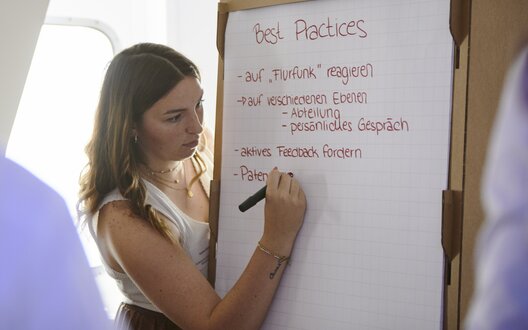 Best Practices
- auf „Flurfunk" reagieren
→ auf verschiedenen Ebenen
- Abteilung
- persönliches Gespräch
- aktives Feedback fordern
- Paten